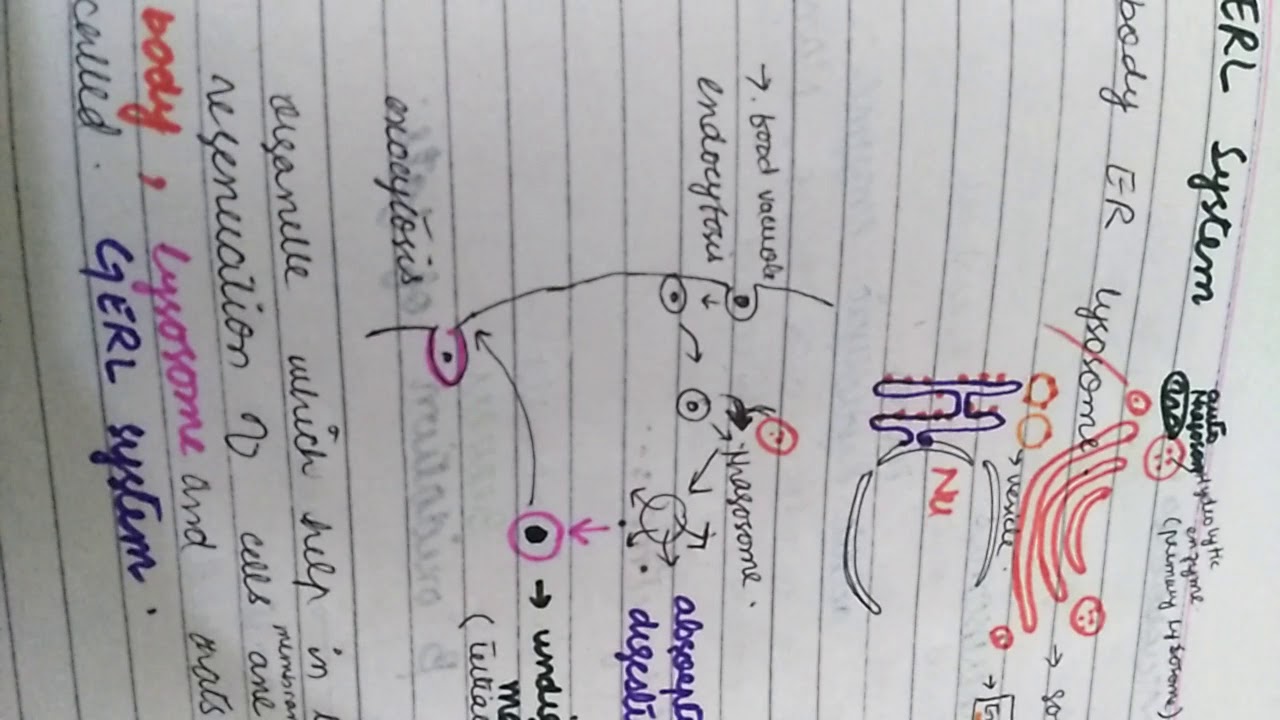 ERL System
body ER lysosome.
auto
hydrolytic
enzyme
(primary lysosome)
→ vesicle.
Nu
→ food vacuole
endocytosis
Phagosome.
absorpt
digesti
→ undi
(tertia
exocytosis
organelle which help in
regeneration of cells
membran
body, lysosome and
called. GERL system.